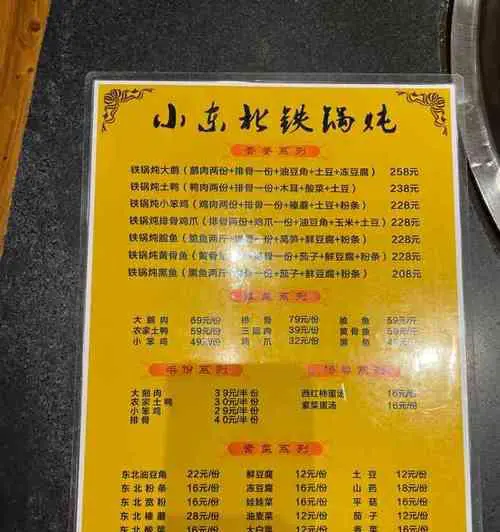 小东北铁锅炖
套餐系列
铁锅炖大鹅（鹅肉两份+排骨一份+油豆角+土豆+冻豆腐） 258元
铁锅炖土鸭（鸭肉两份+排骨一份+木耳+酸菜+土豆） 238元
铁锅炖小笨鸡（鸡肉两份+排骨一份+榛蘑+土豆+粉条） 228元
铁锅炖排骨鸡爪（排骨两份+鸡爪一份+油豆角+玉米+土豆） 228元
铁锅炖鮰鱼（鮰鱼两斤+排骨一份+莴笋+鲜豆腐+粉条） 228元
铁锅炖黄骨鱼（黄骨鱼 +排骨一份+茄子+鲜豆腐+粉条） 228元
铁锅炖黑鱼（黑鱼两斤+排骨一份+茄子+鲜豆腐+粉条） 208元
系列
大鹅肉 69元/份 排骨 79元/份 鮰鱼 59元/斤
农家土鸭 59元/份 三层肉 39元/份 黄骨鱼 59元/斤
小笨鸡 49元/份 鸡爪 32元/份 黑鱼
半份系列
大鹅肉 39元/半份
农家土鸭 30元/半份
小笨鸡 29元/半份
排骨 40元/半份
系列
西红柿蛋汤 16元/份
紫菜蛋汤 16元/份
素菜系列
东北油豆角 22元/份 鲜豆腐 12元/份 土豆 12元/份
东北粉条 16元/份 冻豆腐 16元/份 山药 18元/份
东北宽粉 16元/份 娃娃菜 16元/份 平菇 16元/份
东北榛蘑 28元/份 油麦菜 12元/份 茄子 12元/份
东北酸菜 16元/份 大白菜 12元/份 16元/份